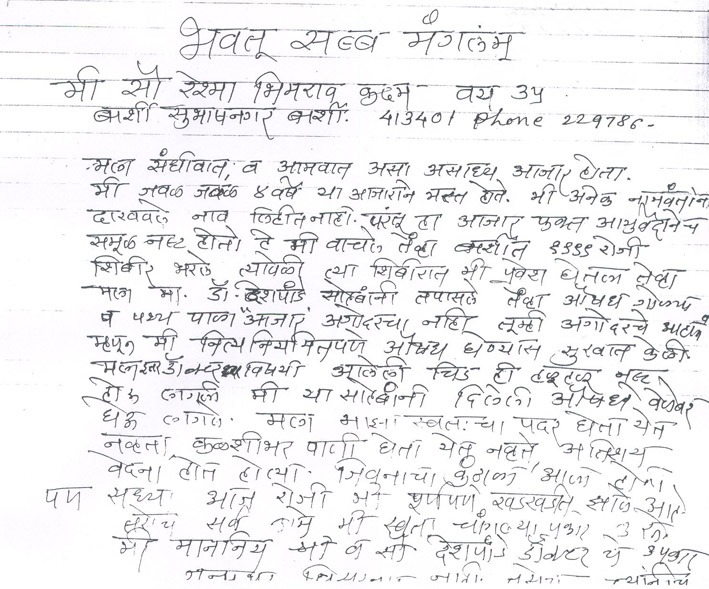 भवतू सब्ब मंगलंम्
मी सौ रेश्मा भिमराव कदम वय ३५
बार्शी सुभाषनगर बार्शी. 413401 Phone 229786-
मला संधीवात, व आमवात असा असाध्य आजार होता.
मी जवळ जवळ ४ वर्षे या आजाराने त्रस्त होते. मी अनेक
दाखवले नाव लिहीत नाही. परंतू हा आजार फक्त आयुर्वेदानेच
समूळ नष्ट होतो हे मी वाचले तेंव्हा बार्शीत १९९९ रोजी
शिबीर भरले त्यावेळी त्या शिबीरात मी प्रवेश घेतला तेंव्हा
मला मा. डॉ. देशपांडे साहेबांनी तपासले तेंव्हा औषध गोळ्या
व पथ्य पाळा "आजार अंगोदरचा नाही तूम्ही अंगोदरचे
म्हणून मी नित्यनियमितपणे औषध घेण्यास सुरवात केली.
मला विषयी आलेली चिड ही हळूहळू नष्ट
होऊ लागली मी या साहेबांनी दिलेली औषध वेळेवर
घेऊ लागले. मला माझा स्वतःचा पदर घेता येत
नव्हता कळशीभर पाणी घेता येत नव्हते अतिशय
वेदना होत होत्या. जिवनाचा कंटाळा आला होता
पण सध्या आज रोजी मी पूर्णपणे खडखडीत झाले आहे
घरातील सर्व कामे मी स्वता चांगल्या प्रकारे
मी माननिय श्री व सौ देशपांडे डॉक्टर चे उपकार